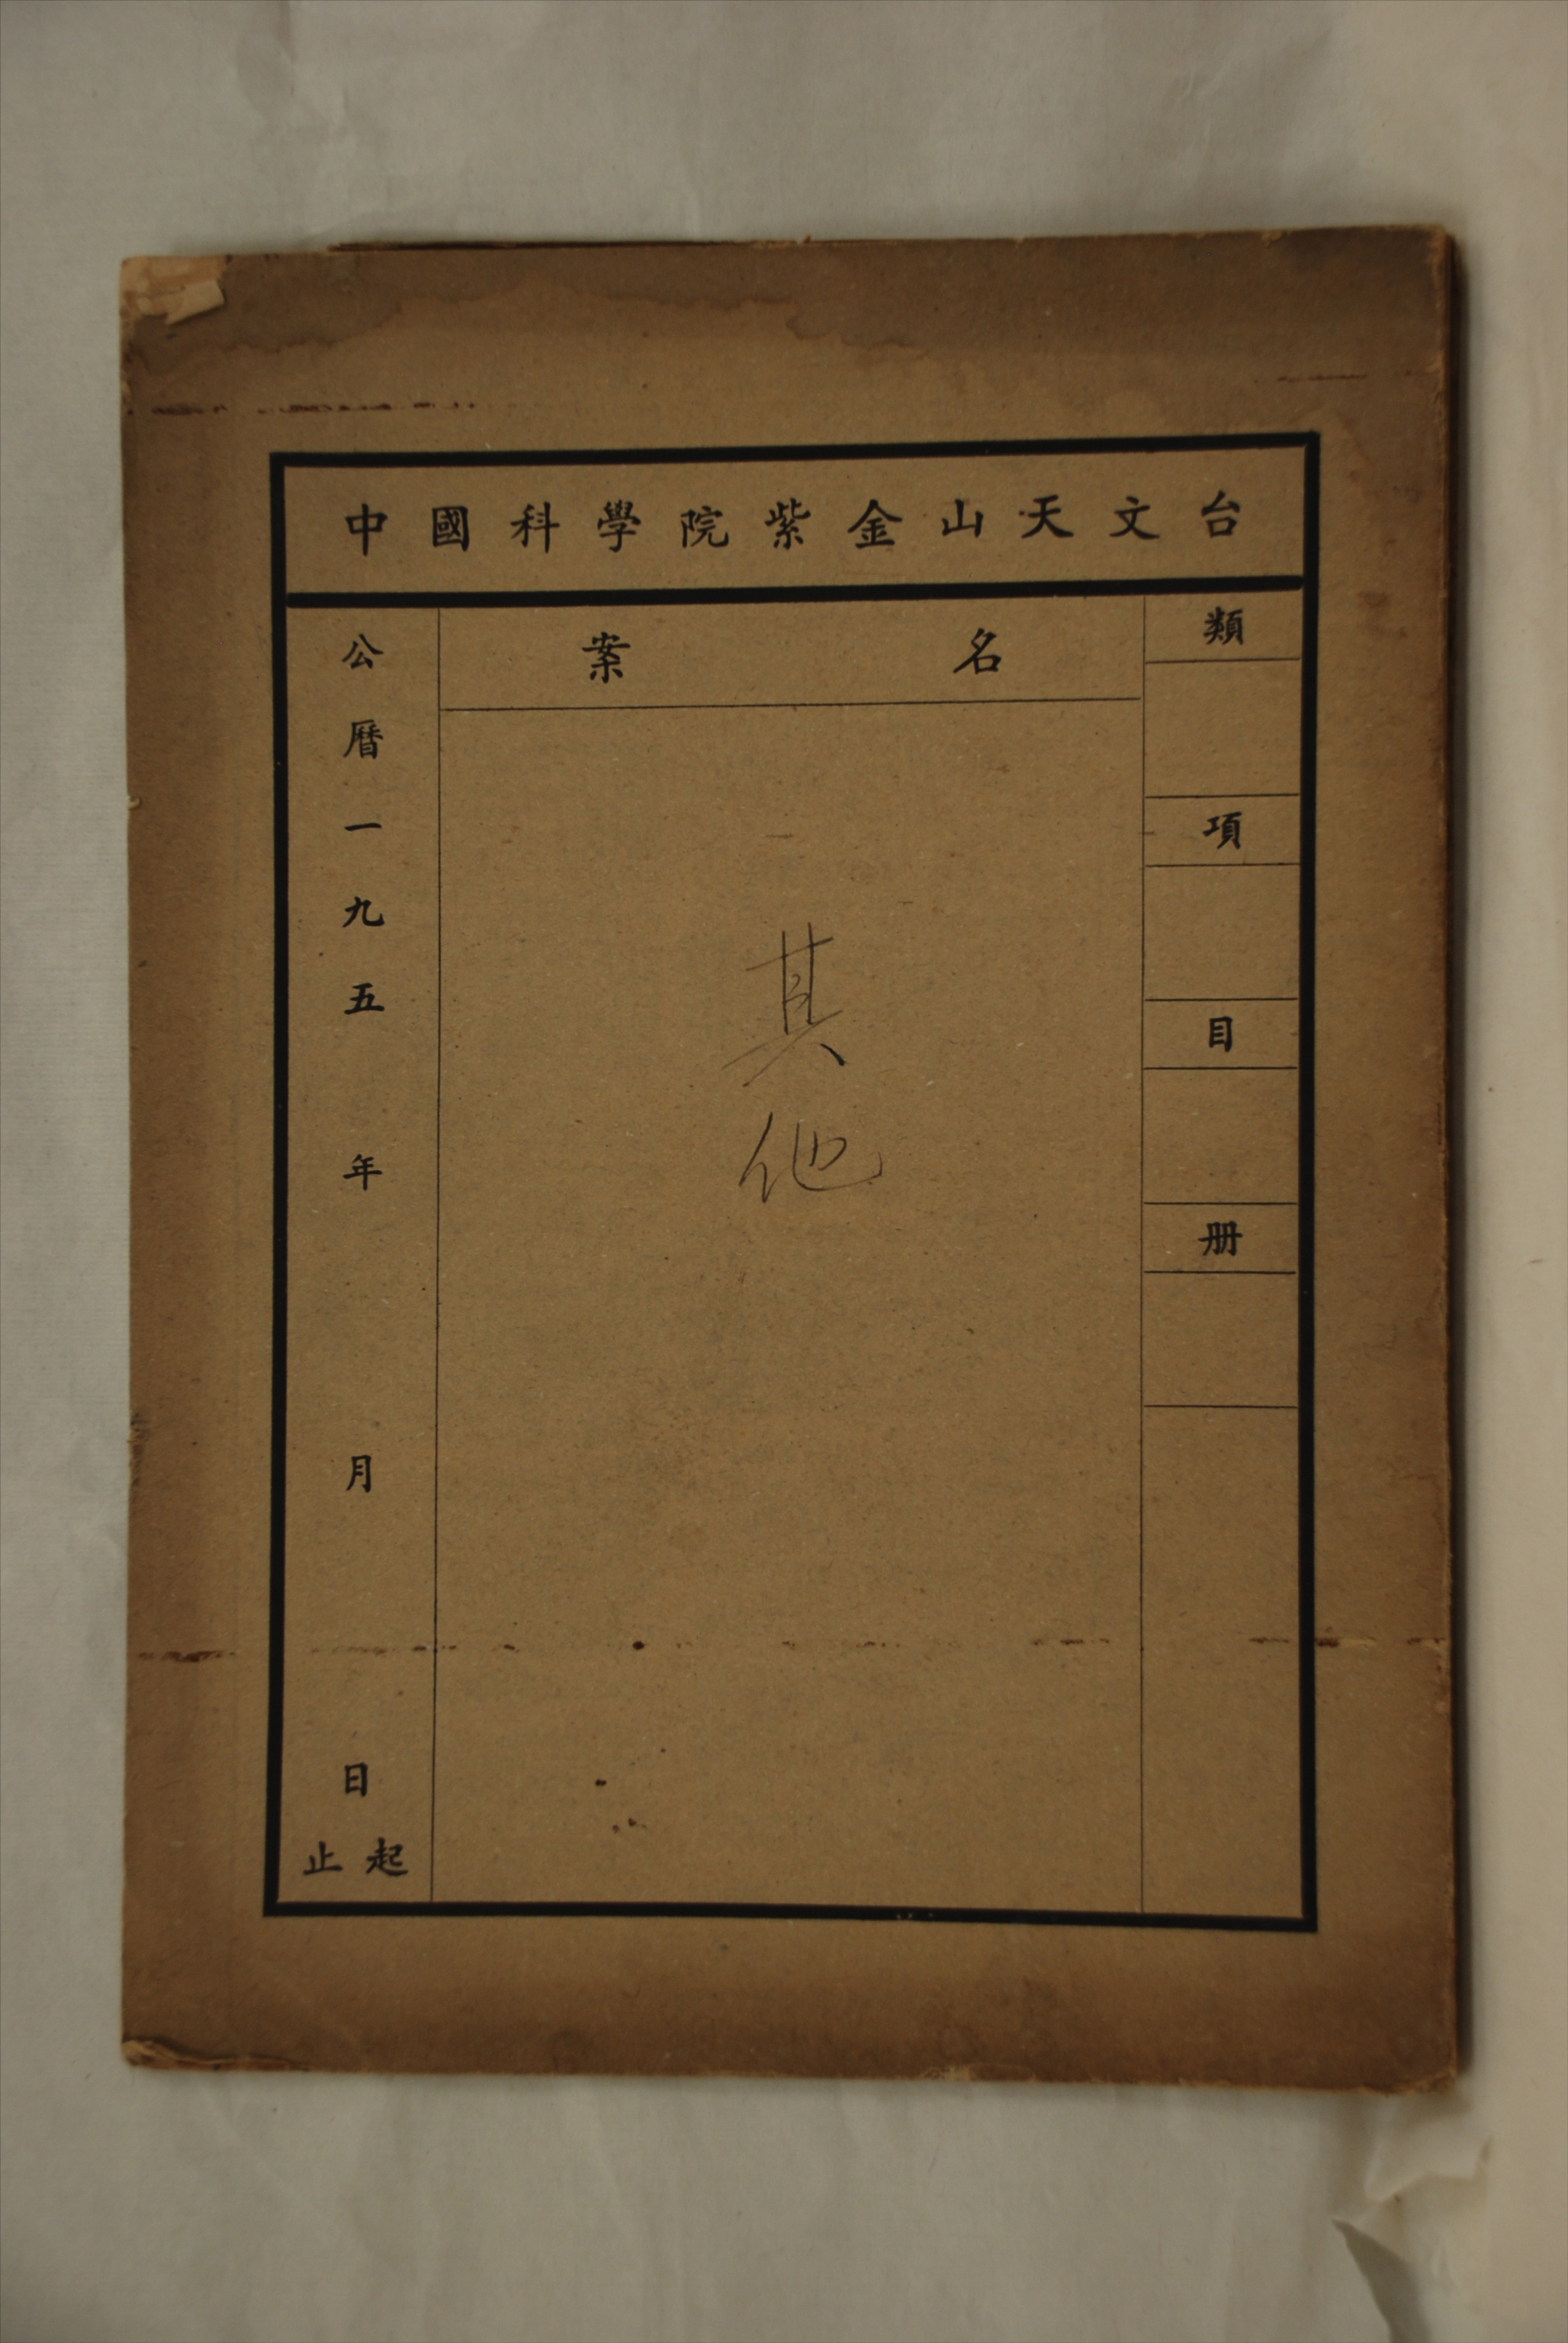 中國科學院紫金山天文台
案名
其他
類
項
目
册
公曆一九五 年 月 日
止起